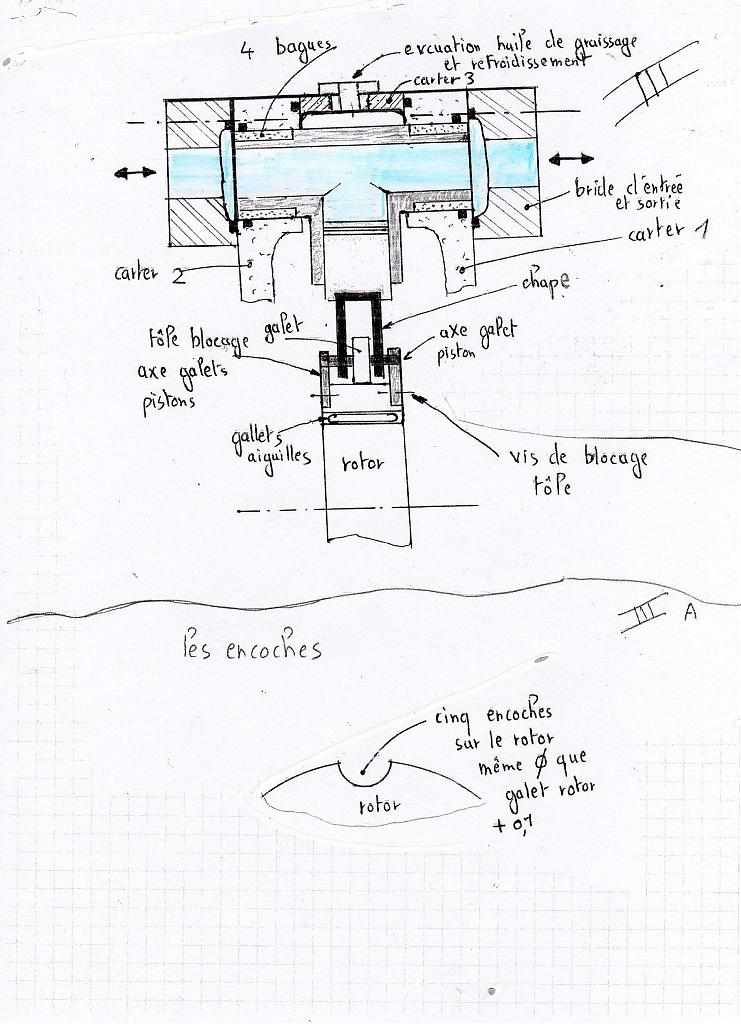 4 bagues
evcuation huile de graissage
et refroidissement
carter 3
bride d'entrée
et sortie
carter 1
carter 2
chape
tôle blocage
axe galets
pistons
galet
axe galet
piston
gallets
aiguilles
rotor
vis de blocage
tôle
A
les encoches
cinq encoches
sur le rotor
même ϕ que
galet rotor
+ 0,1
rotor